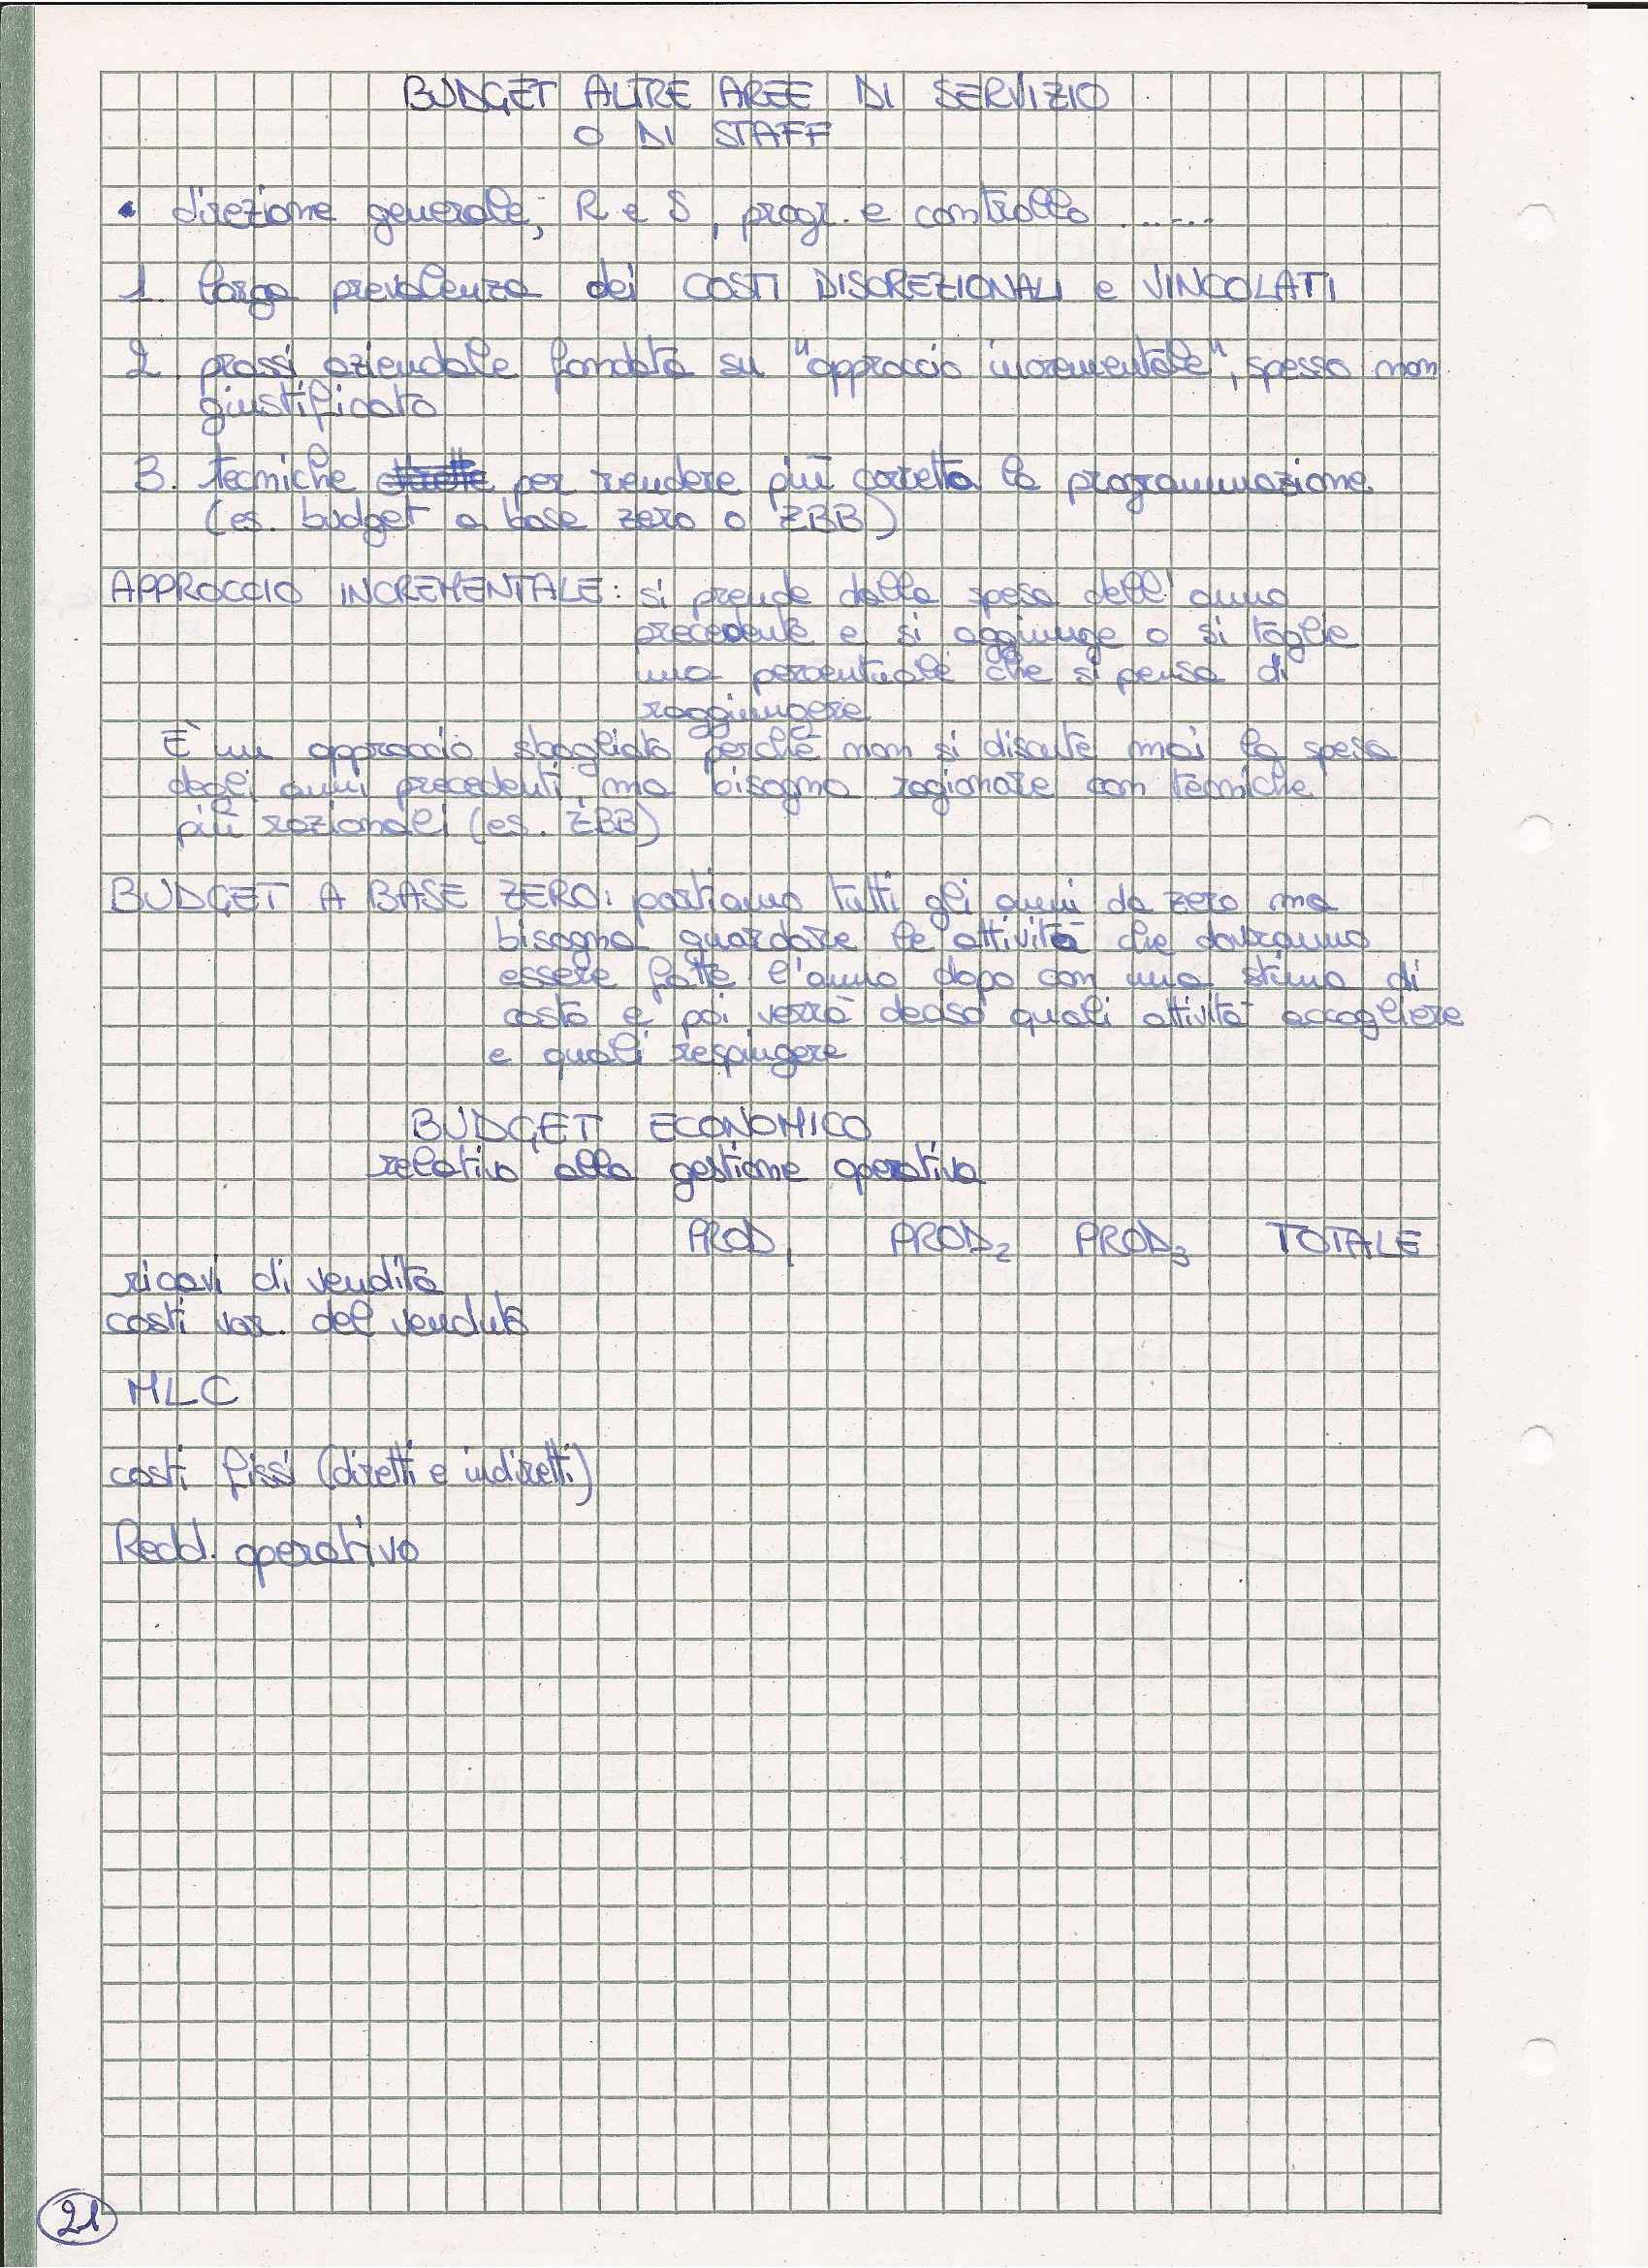 BUDGET ALTRE AREE DI SERVIZIO
O DI STAFF
• direzione generale, R e S, progr. e controllo .....
1. larga prevalenza dei COSTI DISCREZIONALI e VINCOLATI
2. prassi aziendale fondata su "approccio incrementale", spesso non
giustificato
3. tecniche per rendere più corretta la programmazione
(es. budget a base zero o ZBB)
APPROCCIO INCREMENTALE: si prende dalla spesa dell'anno
precedente e si aggiunge o si toglie
una percentuale che si pensa di
raggiungere
È un approccio sbagliato perché non si discute mai la spesa
degli anni precedenti, ma bisogna ragionare con tecniche
più razionali (es. ZBB)
BUDGET A BASE ZERO: partiamo tutti gli anni da zero ma
bisogna guardare le attività che dovranno
essere fatte l'anno dopo con una stima di
costo e poi verrà deciso quali attività accogliere
e quali respingere
BUDGET ECONOMICO
relativo alla gestione operativa
PROD1 PROD2 PROD3 TOTALE
ricavi di vendita
costi var. del venduto
MLC
costi fissi (diretti e indiretti)
Redd. operativo
21